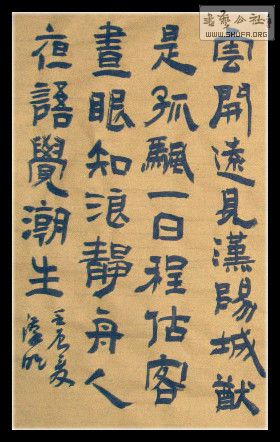 書藝公社
WWW.SHUFA.ORG
雲開遠見漢陽城猷
是孤颿一日程估客
晝眠知浪靜舟人
夜語覺潮生
壬辰夏